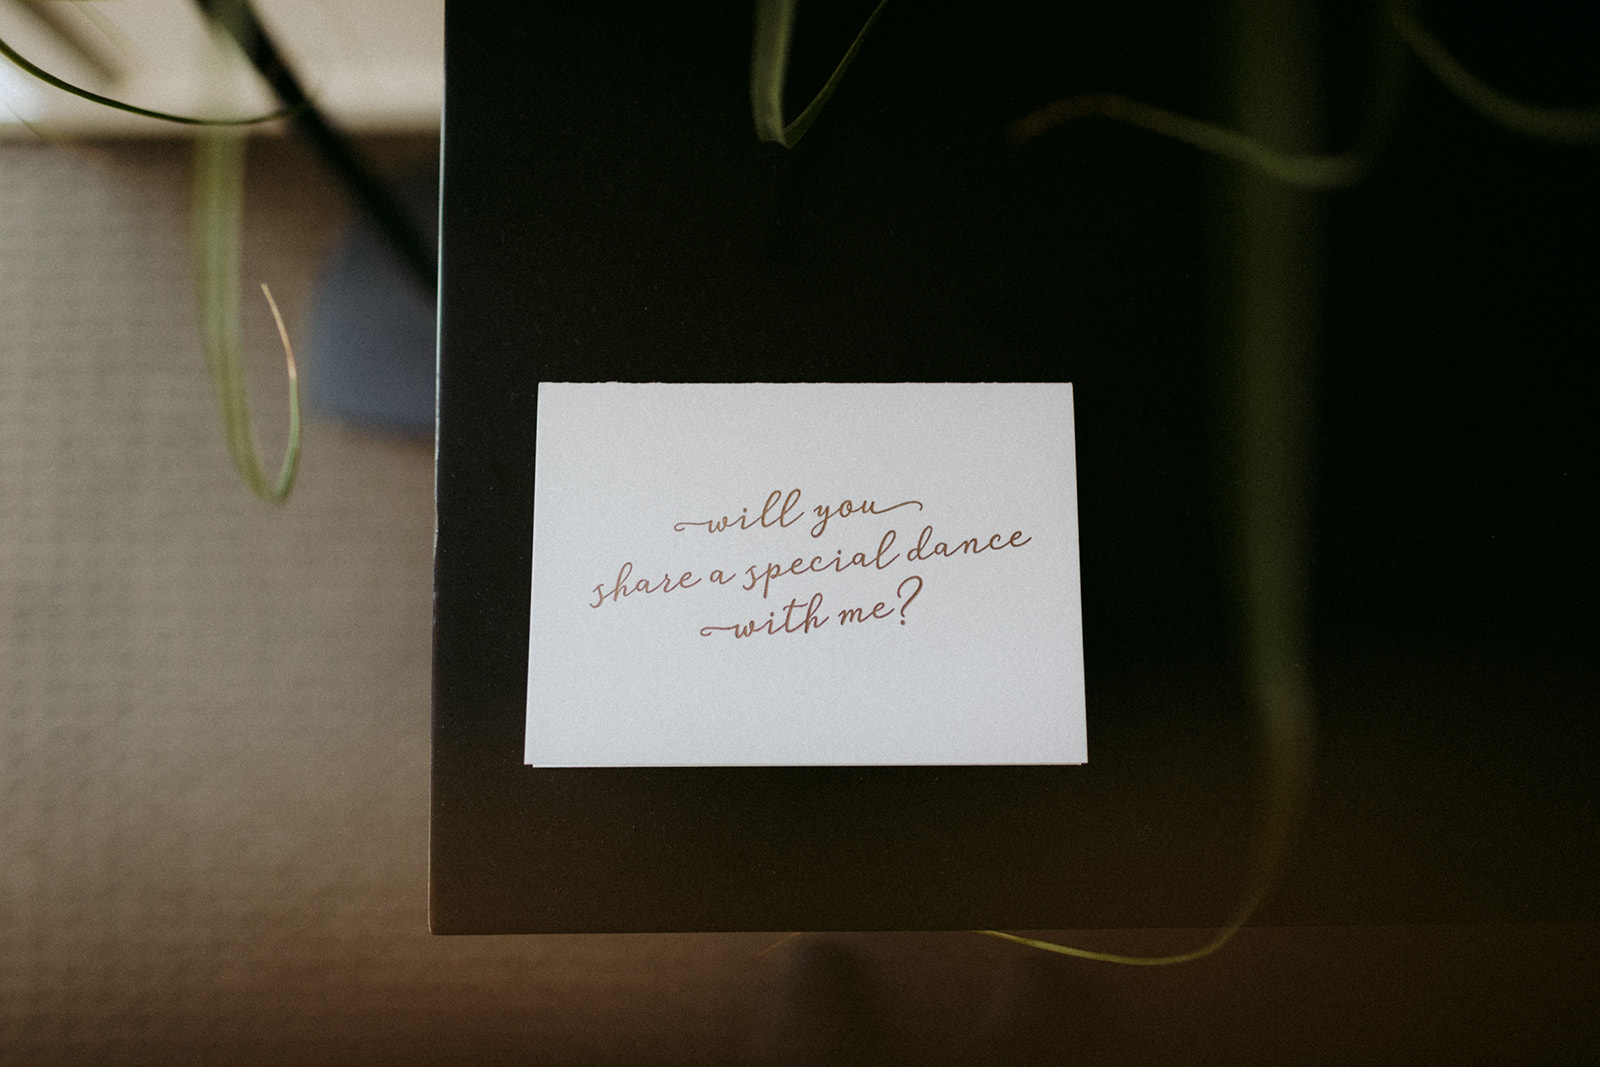 will you
share a special dance
with me?